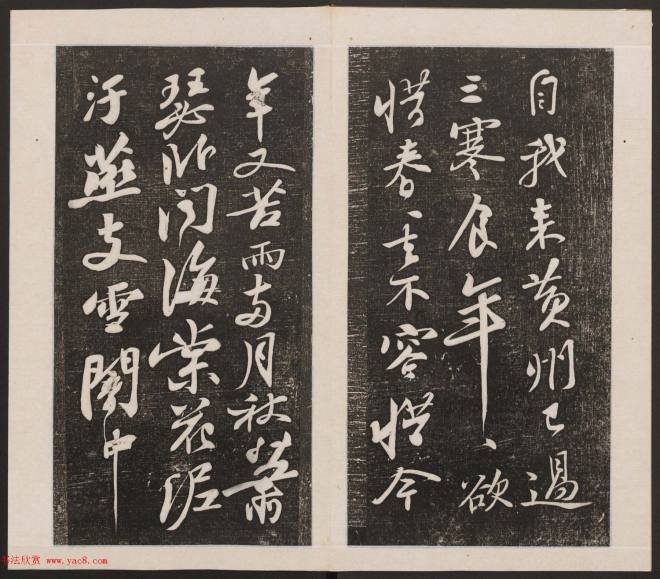 自我来黄州已過
三寒食年〻欲
惜春春去不容惜今
年又苦雨兩月秋蕭
瑟卧聞海棠花泥
汙燕支雪闇中
书法欣赏 www.yac8.com